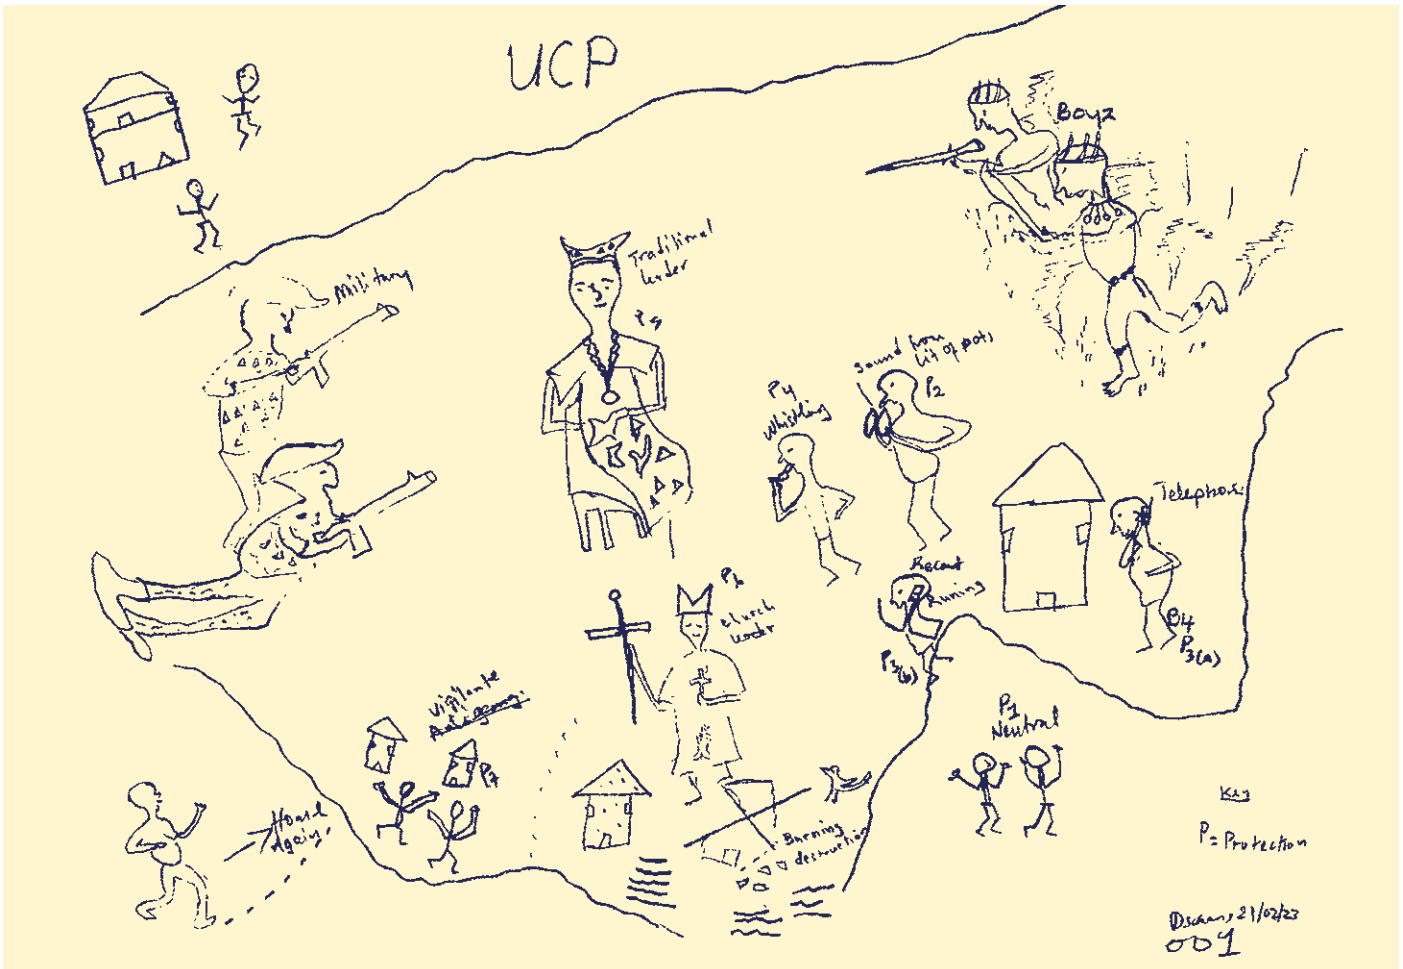 UCP
Boyz
Military
Traditional
leder
P5
Sound from
hit of pots
P2
P4
Whistling
Telephone
B4
P3(a)
Runing
P3(b)
P6
church
leader
Vigilante
P7
P1
Neutral
Home
Again
Burning
destruction
Key
P = Protection
Dscham, 21/02/23
001